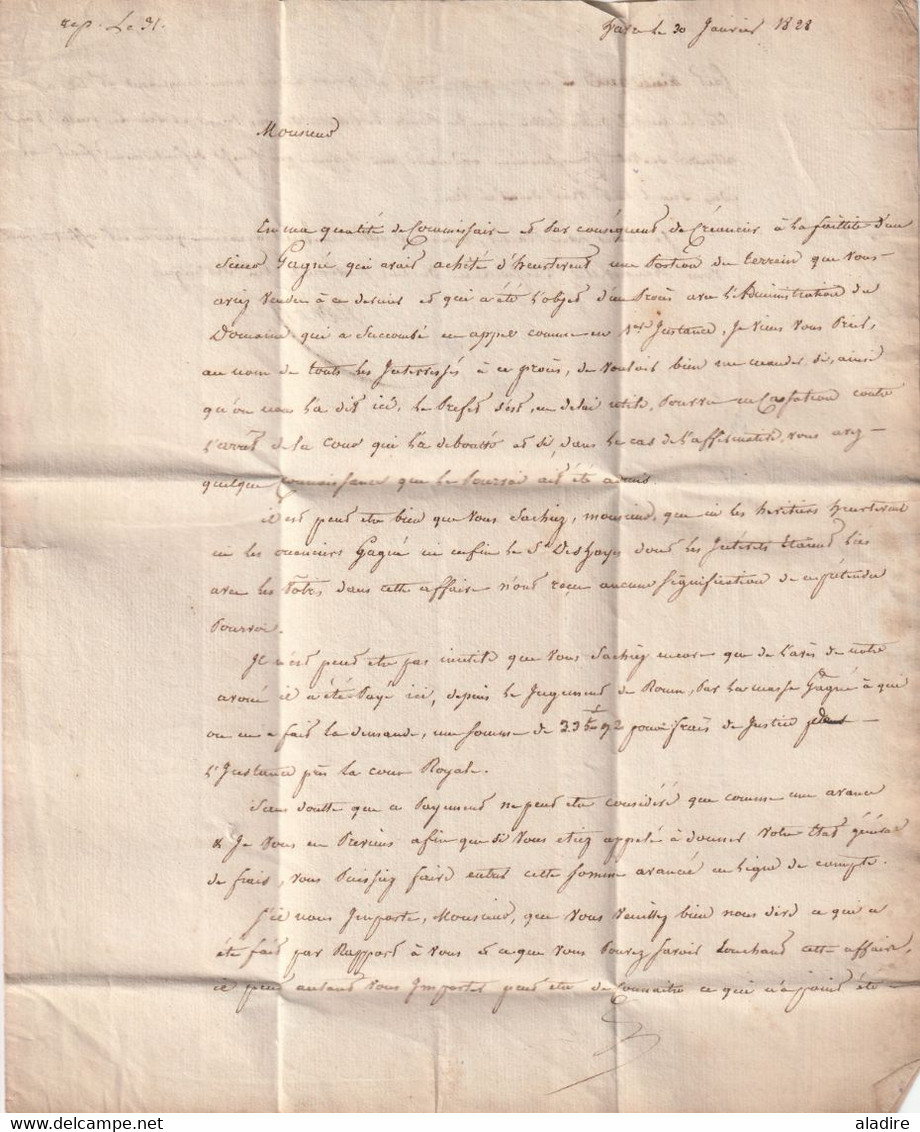 rep. Le 31.
le 30 Janvier 1828
Monsieur
En ma qualité de Commissaire et par conséquent de Créancier à la faillite d'un
Sieur Gagné qui avait acheté d'heurtevent une Portion du terrein que vous
aviez vendu à ce dernier et qui a été l'objet d'un Procès avec l'Administration du
Domaine qui a Succombé en appel comme en 1ere Instance, Je viens vous Prier,
au nom de touts les Interessés à ce procès, de vouloir bien me mander si, ainsi
qu'on nous l'a dit ici, le Prefet s'est, en délai utile, Pourvu en Cassation contre
l'arrêt de la Cour qui l'a debouté et si, dans le cas de l'affirmative, vous avez
quelque Connaissance que le Pourvoi ait été admis
il est peut etre bien que vous sachiez, monsieur, que ni les heritiers heurtevent
ni les creanciers Gagné ni enfin le Sr Deshayes dont les Intérets étaient liés
avec les votres dans cette affaire n'ont reçu aucune Signification de ce prétendu
Pourvoi.
Il n'est peut etre pas inutile que vous Sachiez encore que de l'avis de notre
avoué il a été Payé ici, depuis le Jugement de Rouen, Par la masse Gagné à qui
on en a fait la demande, une somme de 33 f 92 pour frais de Justice
l'Instance près la cour Royale.
Sans doutte que ce Payement ne peut etre considéré que comme une avance
& Je vous en Previens afin que si vous etiez appelé à donner votre Etat général
de frais, vous Puissiez faire entrer cette somme avancée en ligne de compte.
S'il nous Importe, Monsieur, que vous veuillez bien nous dire ce qui a
été fait par Rapport à vous et ce que vous Pouvez savoir touchant cette affaire,
il peut autant vous Importer peut etre de Connaitre ce qui n'a point été